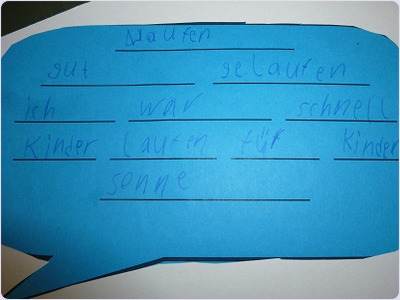 laufen
gut gelaufen
ich war schnell
Kinder laufen für Kinder
sonne